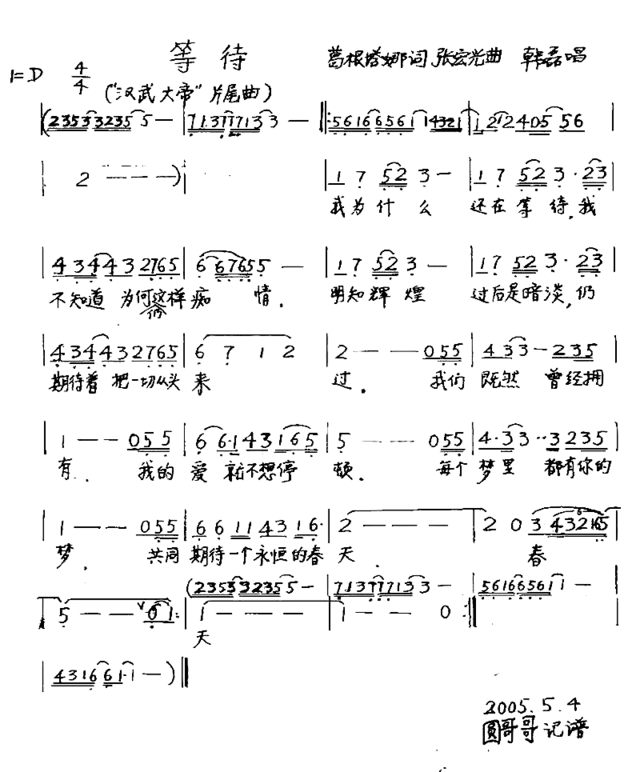 等待
葛根塔娜词 张宏光曲 韩磊唱
1=D 4/4
("汉武大帝"片尾曲)
(23533235 5 — | 71377133 — |: 561665611 4321 | 1 212405 56 |
| 2 — — —) | | 1 7 52 3 — | 1 7 52 3 · 23 |
我为什么 还在等待,我
| 434432765 | 6 67655 — | 1 7 52 3 — | 1 7 52 3 · 23 |
不知道 为何这样痴 情. 明知辉煌 过后是暗淡,仍
| 434432765 | 6 7 1 2 | 2 — — 055 | 433 — 235 |
期待着 把一切从头 来 过. 我们 既然 曾经拥
| 1 — — 055 | 66·143165 | 5 — — 055 | 4·33··3235 |
有. 我的 爱 就不想停 顿. 每个 梦里 都有你的
| 1 — — 055 | 66 11 43 16· | 2 — — — | 2 0 3 432165 |
梦. 共同 期待一个永恒的春 天. 春
(23533235 5 — | 71377133 — | 561665611 —
| 5 — — 01 | 1 — — — | 1 — — 0 :|
天
| 43166 1·1 —)‖
2005.5.4
圆哥哥 记谱